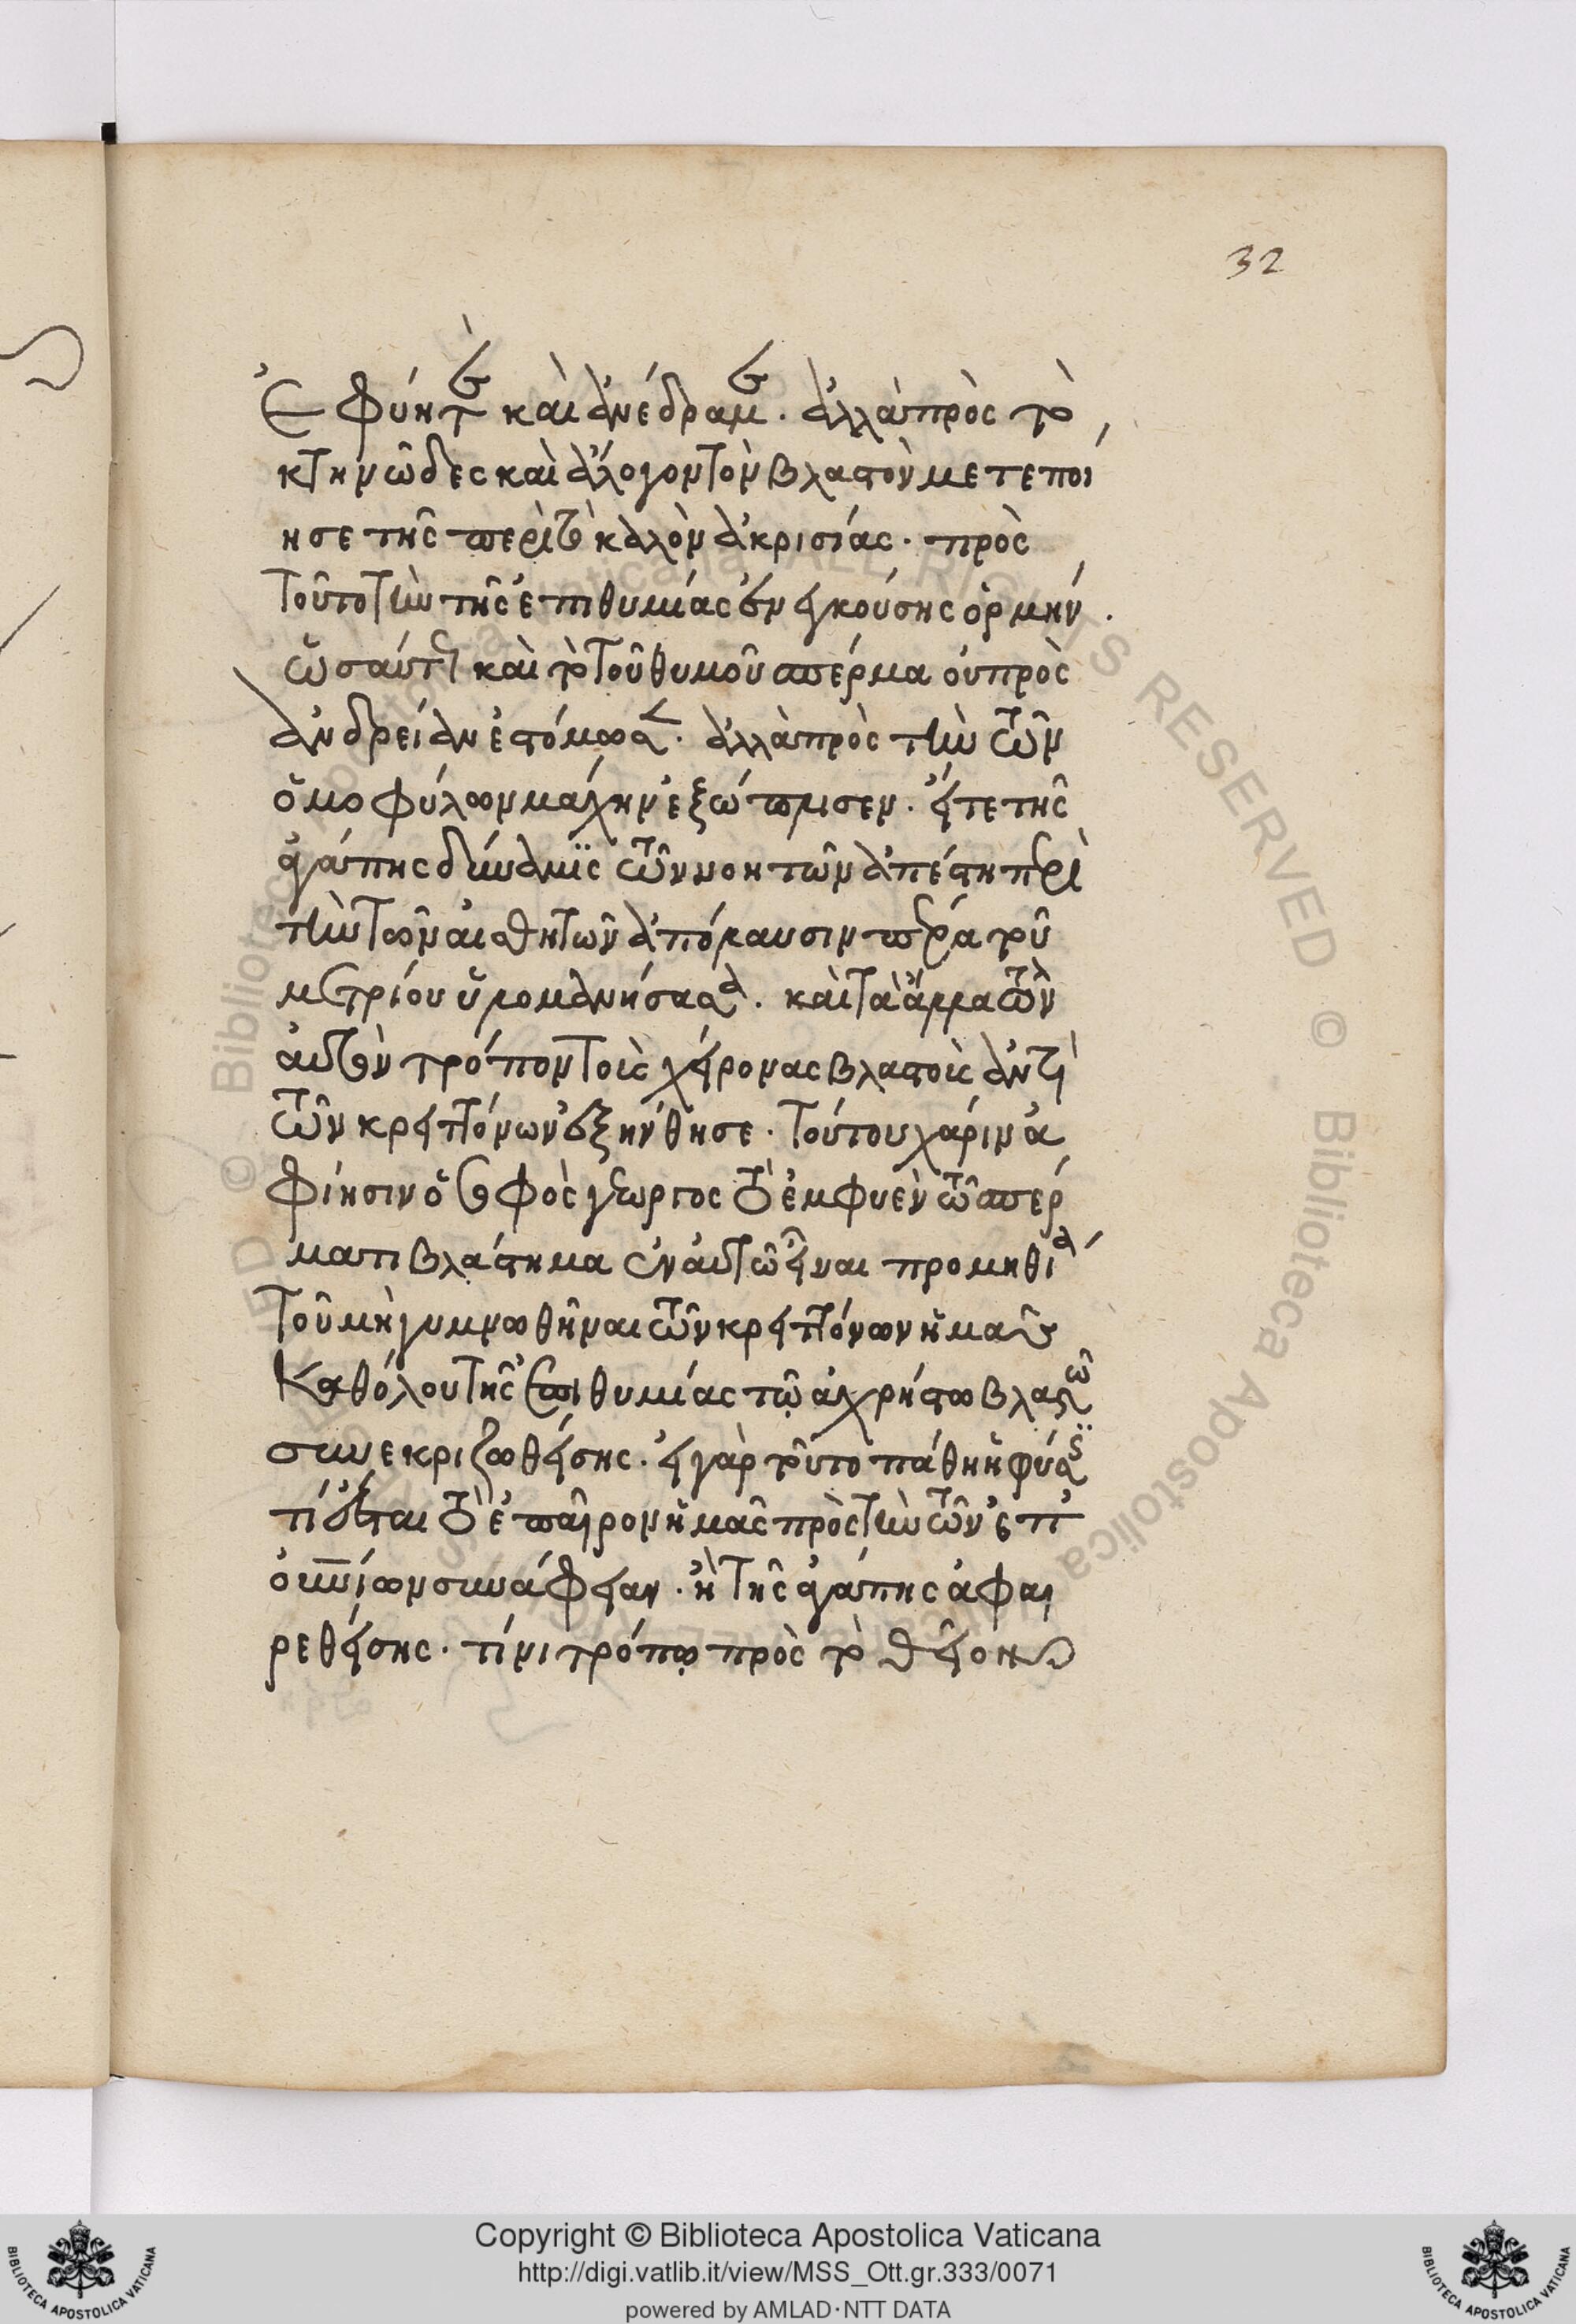 32
ἐφύητον καὶ ἀνέδραμον. ἀλλὰ πρὸς τὸ
κτηνῶδες καὶ ἄλογον τὸν βλαστὸν μετεποί
ησε τῆς περὶ τὸ καλὸν ἀκρισίας. πρὸς
τοῦτο τὴν τῆς ἐπιθυμίας ἐνεγκούσης ὁρμήν.
ὡσαύτως καὶ τὸ τοῦ θυμοῦ σπέρμα οὐ πρὸς
ἀνδρείαν ἐστόμωσεν. ἀλλὰ πρὸς τὴν τῶν
ὁμοφύλων μάχην ἐξώπλισεν. ἥτε τῆς
ἀγάπης δύναμις τῶν νοητῶν ἀπέστη περὶ
τὴν τῶν αἰσθητῶν ἀπόλαυσιν πέρα τοῦ
μετρίου ὑλομανήσασα. καὶ τὰ ἄλλα τὸν
αὐτὸν τρόπον τοὺς χείρονας βλαστοὺς ἀντὶ
τῶν κρειττόνων ἐξήνθησε. τούτου χάριν ἀ
φίησιν ὁ σοφὸς γεωργὸς τὸ ἐμφυὲν τῷ σπέρ
ματι βλάστημα ἐν αὐτῷ εἶναι προμηθεία
τοῦ μὴ γυμνωθῆναι τῶν κρειττόνων ἡμᾶς
καθόλου τῆς ἐπιθυμίας τῷ ἀχρήστῳ βλαστῷ
συνεκριζωθείσης. εἰ γὰρ τοῦτο πάθῃ ἡ φύσις
τί ἔσται τὸ ἐπαῖρον ἡμᾶς πρὸς τὴν τῶν ἐπ
ουρανίων συνάφειαν. ἢ τῆς ἀγάπης ἀφαι
ρεθείσης. τίνι τρόπῳ πρὸς τὸ θεῖον
Copyright © Biblioteca Apostolica Vaticana
http://digi.vatlib.it/view/MSS_Ott.gr.333/0071
powered by AMLAD·NTT DATA
BIBLIOTECA APOSTOLICA VATICANA
BIBLIOTECA APOSTOLICA VATICANA